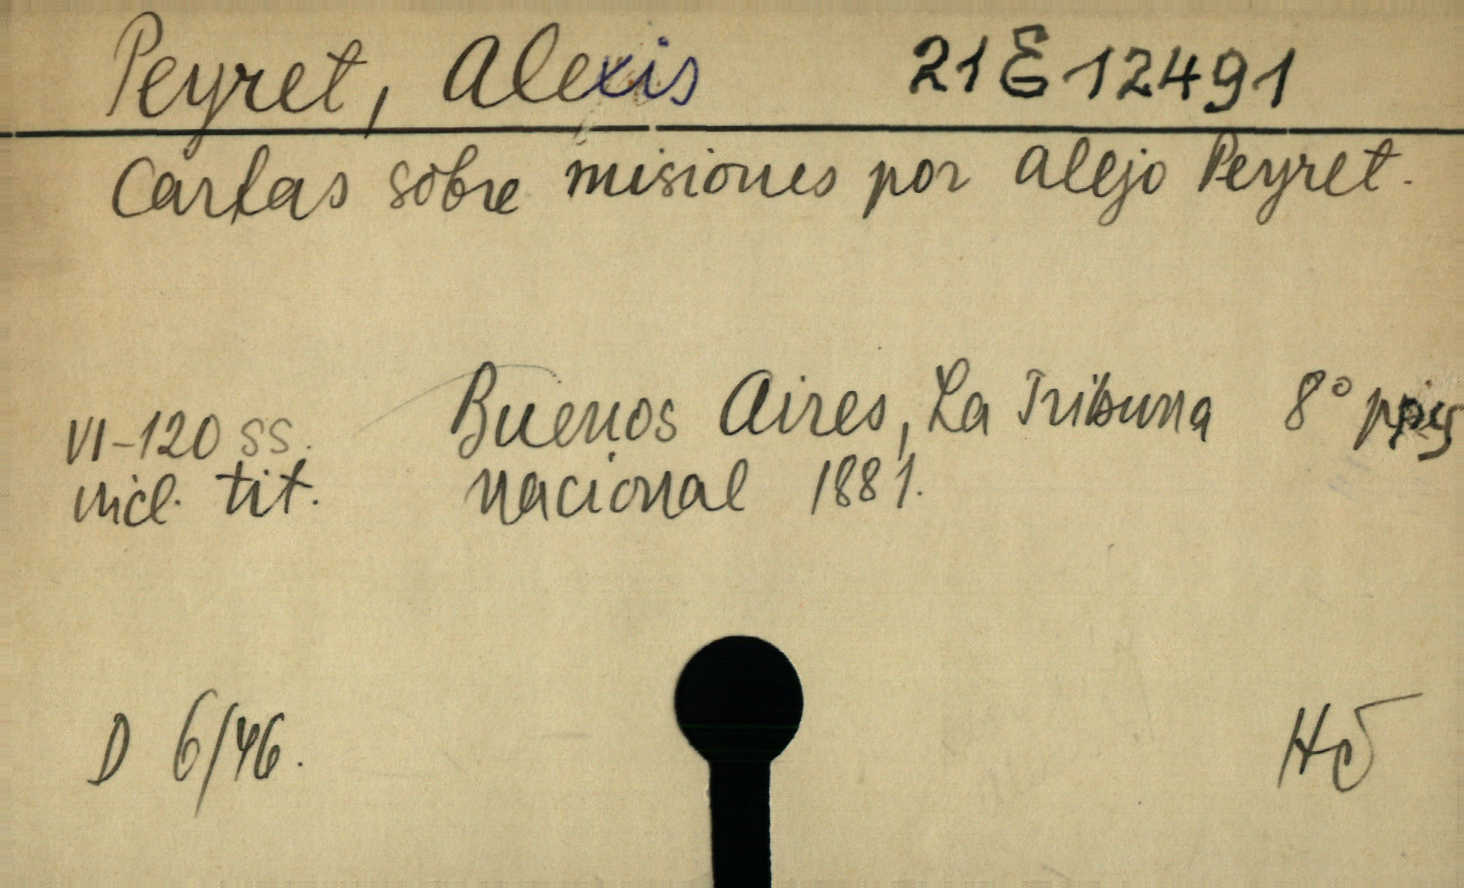 Peyret, Alexis 21 E 12491
Cartas sobre misiones por Alejo Peyret.
VI-120 ss. Buenos Aires, La Tribuna 8°
incl. tit. nacional 1881.
D 6/46.